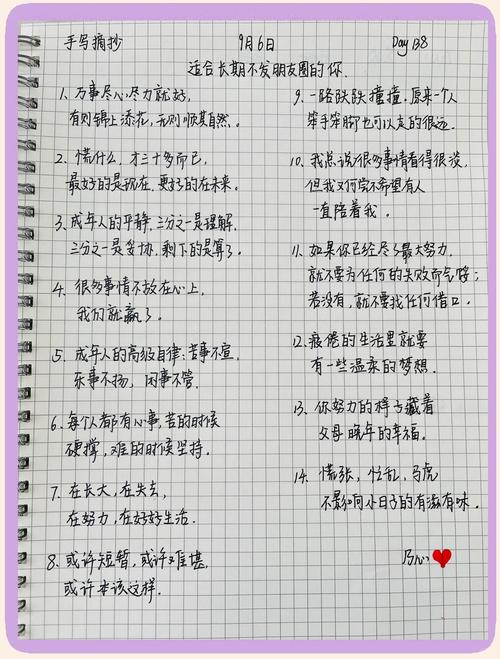 手写摘抄 9月6日 Day 138
适合长期不发朋友圈的你.
1. 万事尽心尽力就好,
有则锦上添花,无则顺其自然。
2. 慌什么,才三十多而已,
最好的是现在,更好的在未来。
3. 成年人的平静,三分之一是理解,
三分之一是妥协,剩下的是算了。
4. 很多事情不放在心上,
我们就赢了。
5. 成年人的高级自律:苦事不宣,
乐事不扬,闲事不管.
6. 每个人都有心事,苦的时候
硬撑,难的时候坚持.
7. 在长大,在失去,
在努力,在好好生活.
8. 或许短暂,或许难堪,
或许本该这样.
9. 一路跌跌撞撞,原来一个人
笨手笨脚也可以走的很远.
10. 我总说很多事情看得很淡,
但我又何尝不希望有人
一直陪着我.
11. 如果你已经尽了最大努力,
就不要为任何的失败而气馁;
若没有,就不要找任何借口.
12. 疲倦的生活里就要
有一些温柔的梦想.
13. 你努力的样子藏着
父母晚年的幸福.
14. 慌张,忙乱,马虎
不影响小日子的有滋有味.